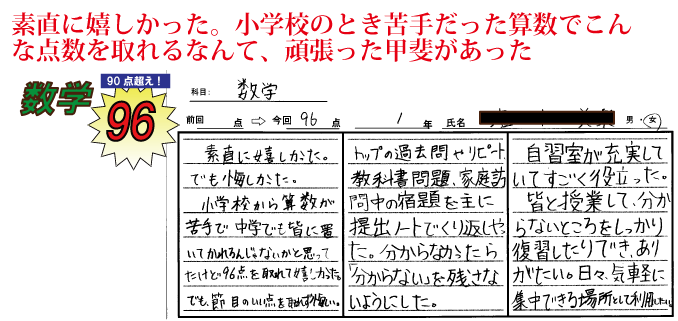 素直に嬉しかった。小学校のとき苦手だった算数でこん
な点数を取れるなんて、頑張った甲斐があった
数学
90点超え！
96
科目: 数学
前回 点 ⇨ 今回 96 点 1 年 氏名 男・女
素直に嬉しかった。
でも悔しかった。
小学校から算数が
苦手で中学でも皆に置
いてかれるんじゃないかと思って
たけど96点を取れて嬉しかった。
でも、節目のいい点を取れず悔しい。
トップの過去問やリピート、
教科書問題、家庭訪
問中の宿題を主に
提出ノートでくり返しやっ
た。分からなかったら
「分からない」を残さな
いようにした。
自習室が充実して
いてすごく役立った。
皆と授業して、分か
らないところをしっかり
復習したりでき、あり
がたい。日々、気軽に
集中できる場所として利用したい。